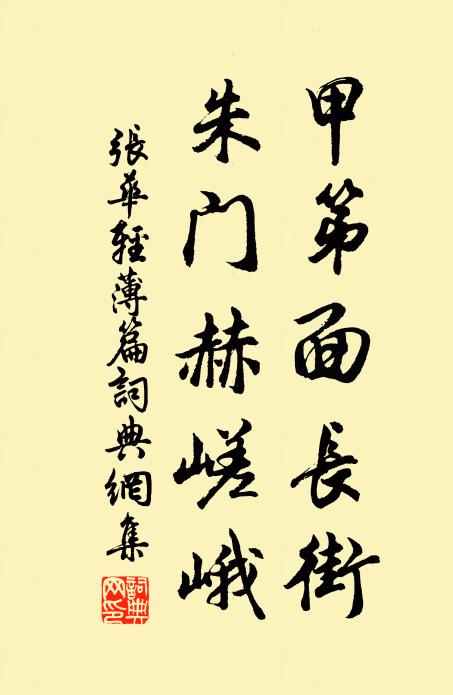 甲第面長街
朱门赫嵯峨
張華輕薄篇詞典網集
詞典网印